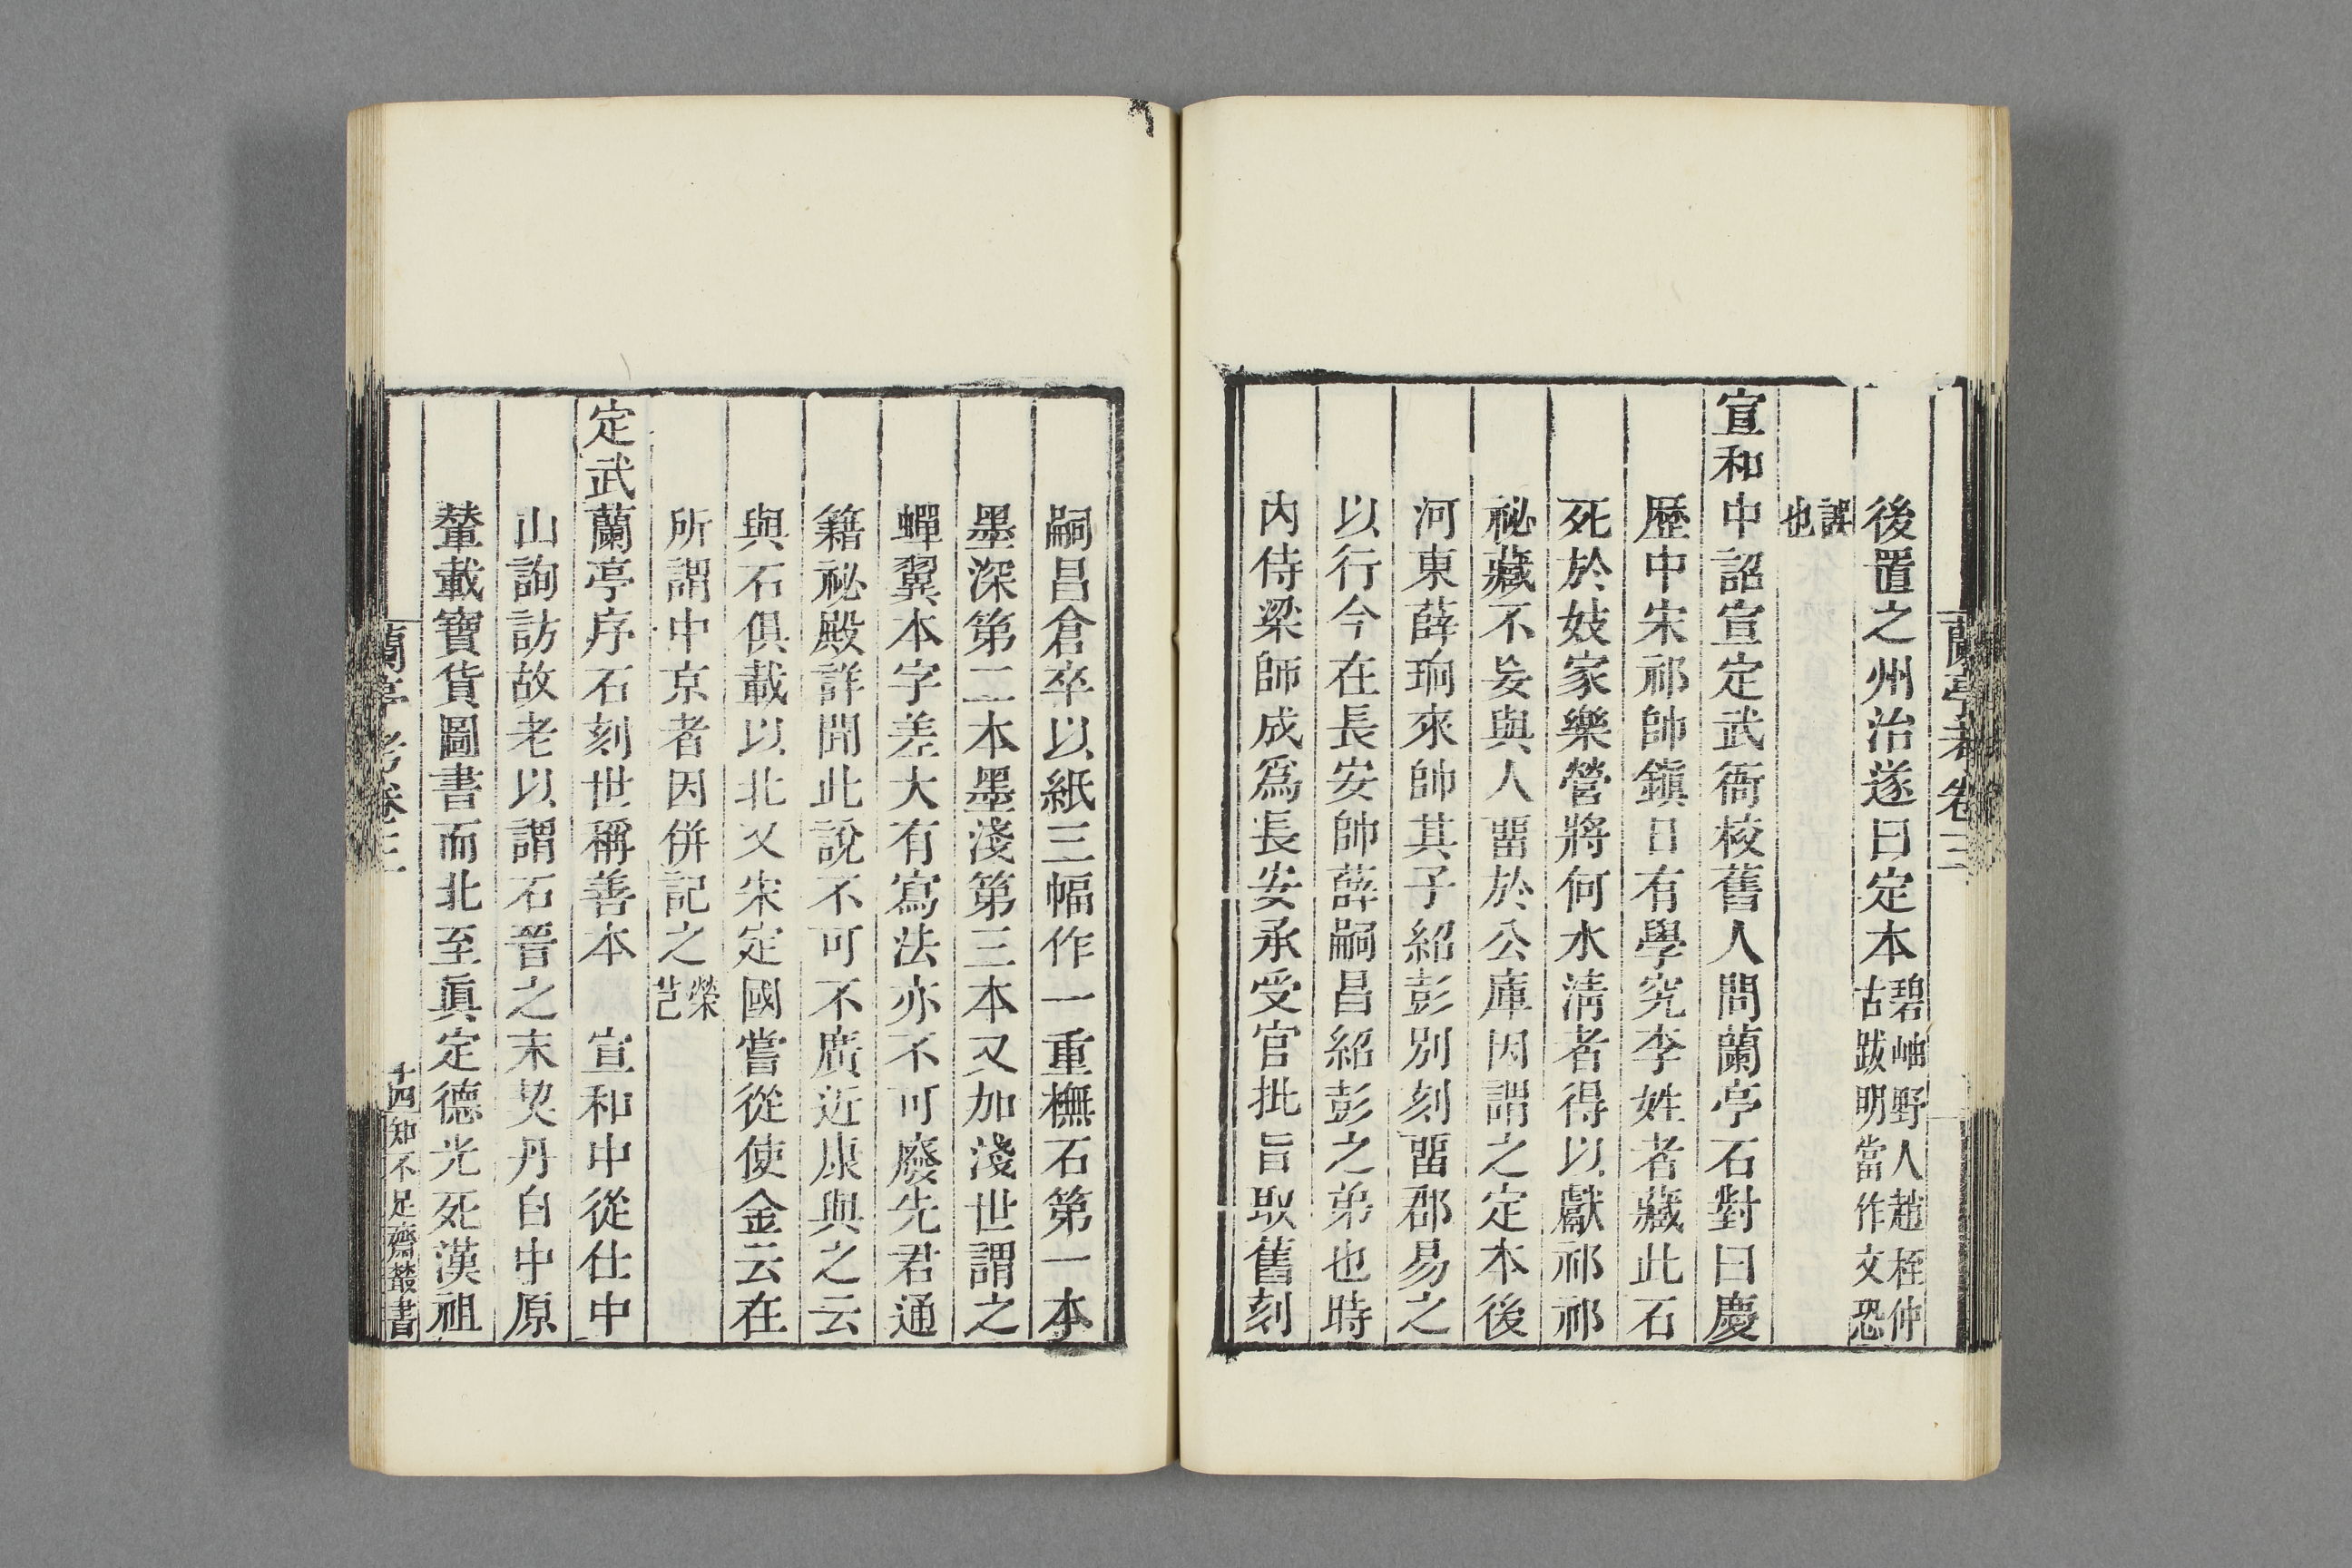 蘭亭考卷三
後置之州治遂曰定本碧岫野人趙桎仲古跋明當作文恐
誤也
宣和中詔宣定武衙校舊人問蘭亭石對曰慶
歷中宋祁帥鎮日有學究李姓者藏此石
死於妓家樂營將何水清者得以獻祁祁
祕藏不妄與人畱於公庫因謂之定本後
河東薛珦來帥其子紹彭別刻畱郡易之
以行今在長安帥薛嗣昌紹彭之弟也時
內侍梁師成爲長安承受官批旨取舊刻
嗣昌倉卒以紙三幅作一重橅石第一本
墨深第二本墨淺第三本又加淺世謂之
蟬翼本字差大有寫法亦不可廢先君通
籍祕殿詳聞此說不可不廣近康與之云
與石俱載以北又宋定國嘗從使金云在
所謂中京者因併記之榮芑
定武蘭亭序石刻世稱善本　宣和中從仕中
山詢訪故老以謂石晉之末契丹自中原
輦載寶貨圖書而北至眞定德光死漢祖
蘭亭考卷三
十四
知不足齋叢書